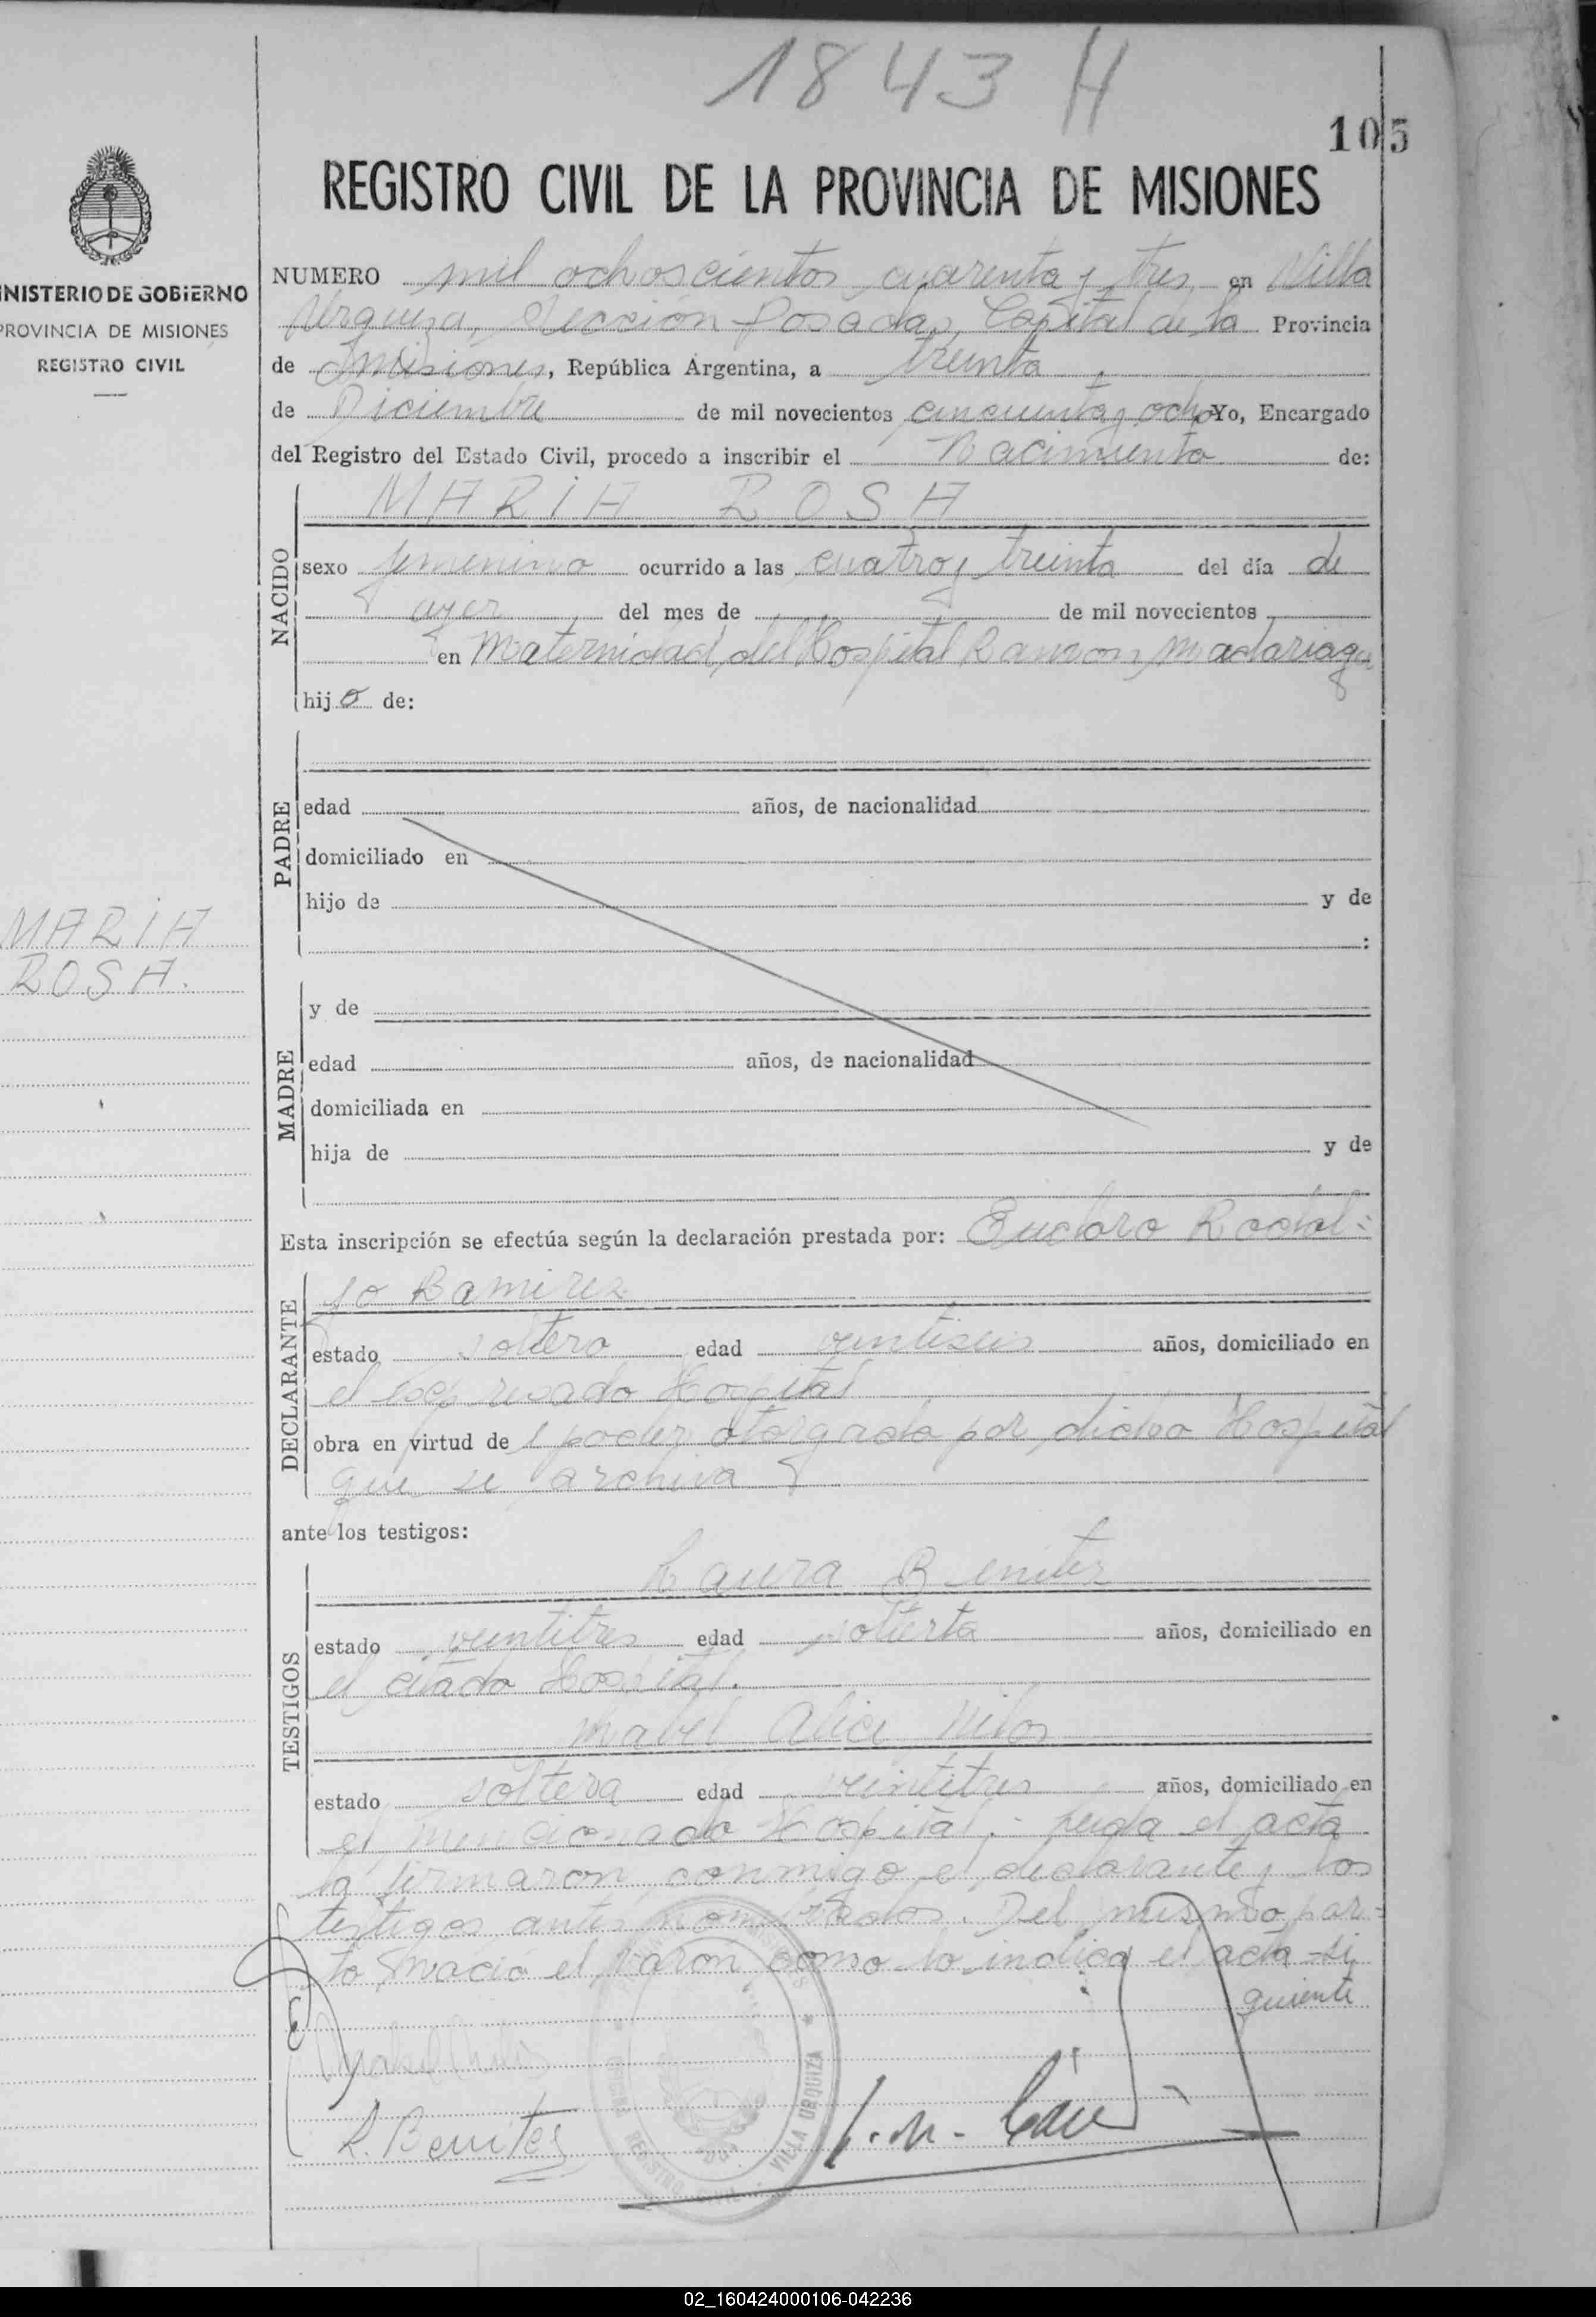 1843 H
105
REGISTRO CIVIL DE LA PROVINCIA DE MISIONES
NUMERO mil ochoscientos cuarenta y tres en Villa
Urquiza, Sección Posadas, Capital de la Provincia
de Misiones, República Argentina, a treinta
de Diciembre de mil novecientos cincuenta y ocho Yo, Encargado
del Registro del Estado Civil, procedo a inscribir el Nacimiento de:
MARIA ROSA
NACIDO
sexo femenino ocurrido a las cuatro y treinta del día de
ayer del mes de de mil novecientos
en Maternidad del Hospital Ramon Madariaga
hijo de:
PADRE
edad años, de nacionalidad
domiciliado en
hijo de y de
:
MADRE
y de
edad años, de nacionalidad
domiciliada en
hija de y de
Esta inscripción se efectúa según la declaración prestada por: Rodal:
DECLARANTE
Ramirez
estado soltero edad veintiseis años, domiciliado en
el expresado Hospital
obra en virtud de poder otorgado por dicho Hospital
que se archiva
ante los testigos:
TESTIGOS
Laura Benitez
estado veintitres edad solterta años, domiciliado en
el citado Hospital.
Mabel Alice
estado soltera edad veintitres años, domiciliado en
el mencionado Hospital. Leida el acta
la firmaron conmigo el declarante y los
testigos antes nombrados. Del mismo par=
to nació el varon como lo indica el acta si
guiente
L. Benitez
OFICINA REGISTRO CIVIL VILLA URQUIZA
MINISTERIO DE GOBIERNO
PROVINCIA DE MISIONES
REGISTRO CIVIL
MARIA
ROSA.
02_160424000106-042236